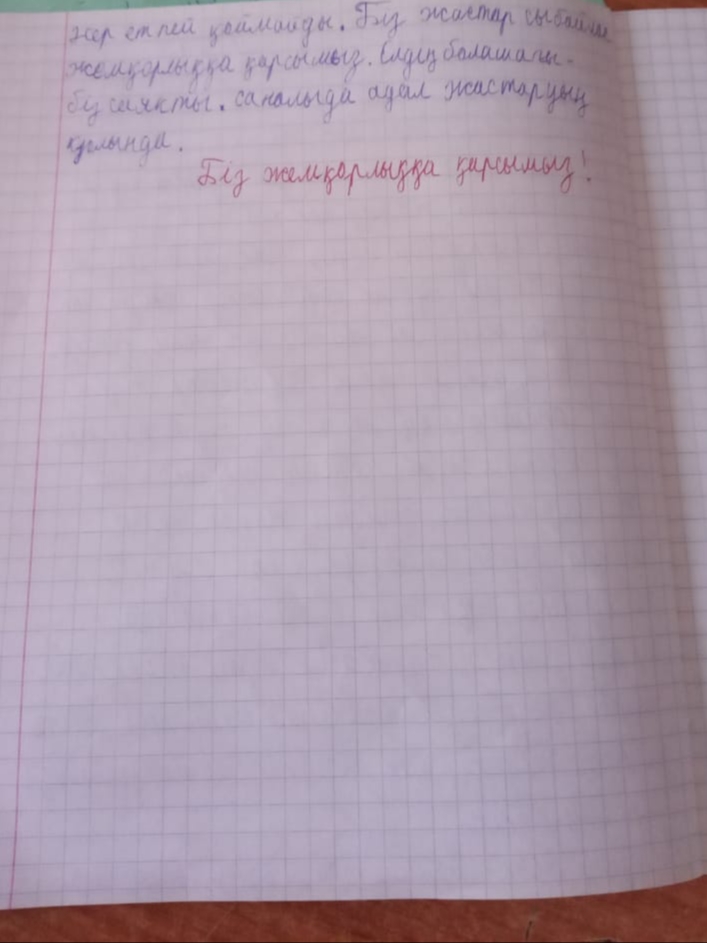 жер етпей қоймайды. Біз жастар сыбайлас
жемқорлыққа қарсымыз. Елдің болашағы-
біз сияқты. саналыда адал жастардың
қолында.
Біз жемқорлыққа қарсымыз!